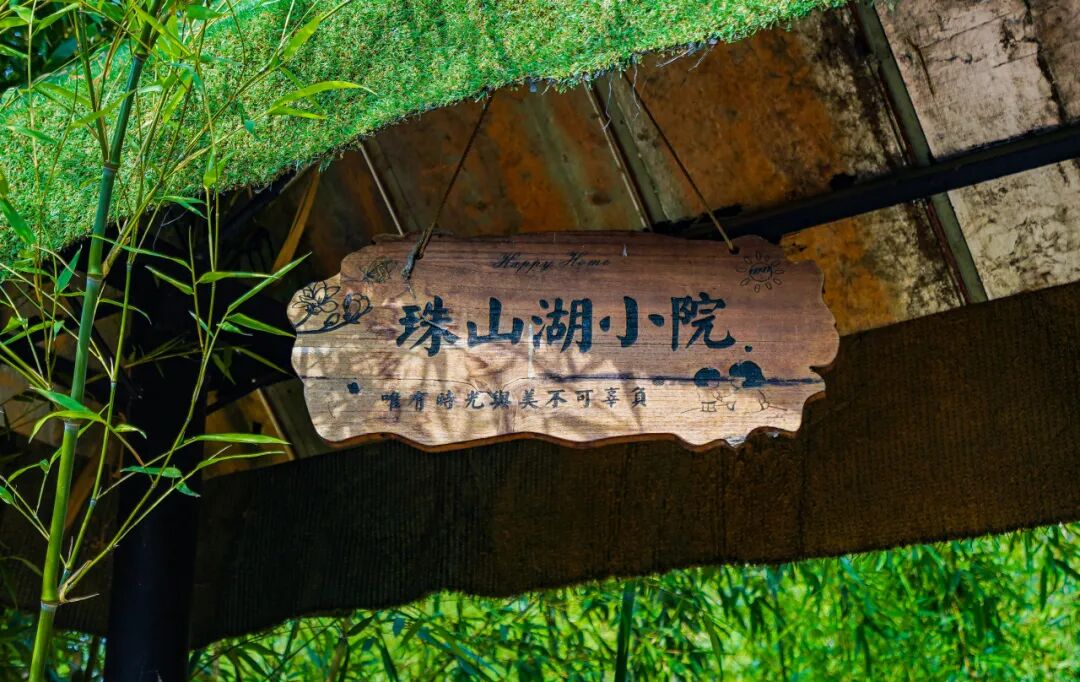 Happy Home
珠山湖小院
唯有時光與美不可辜負